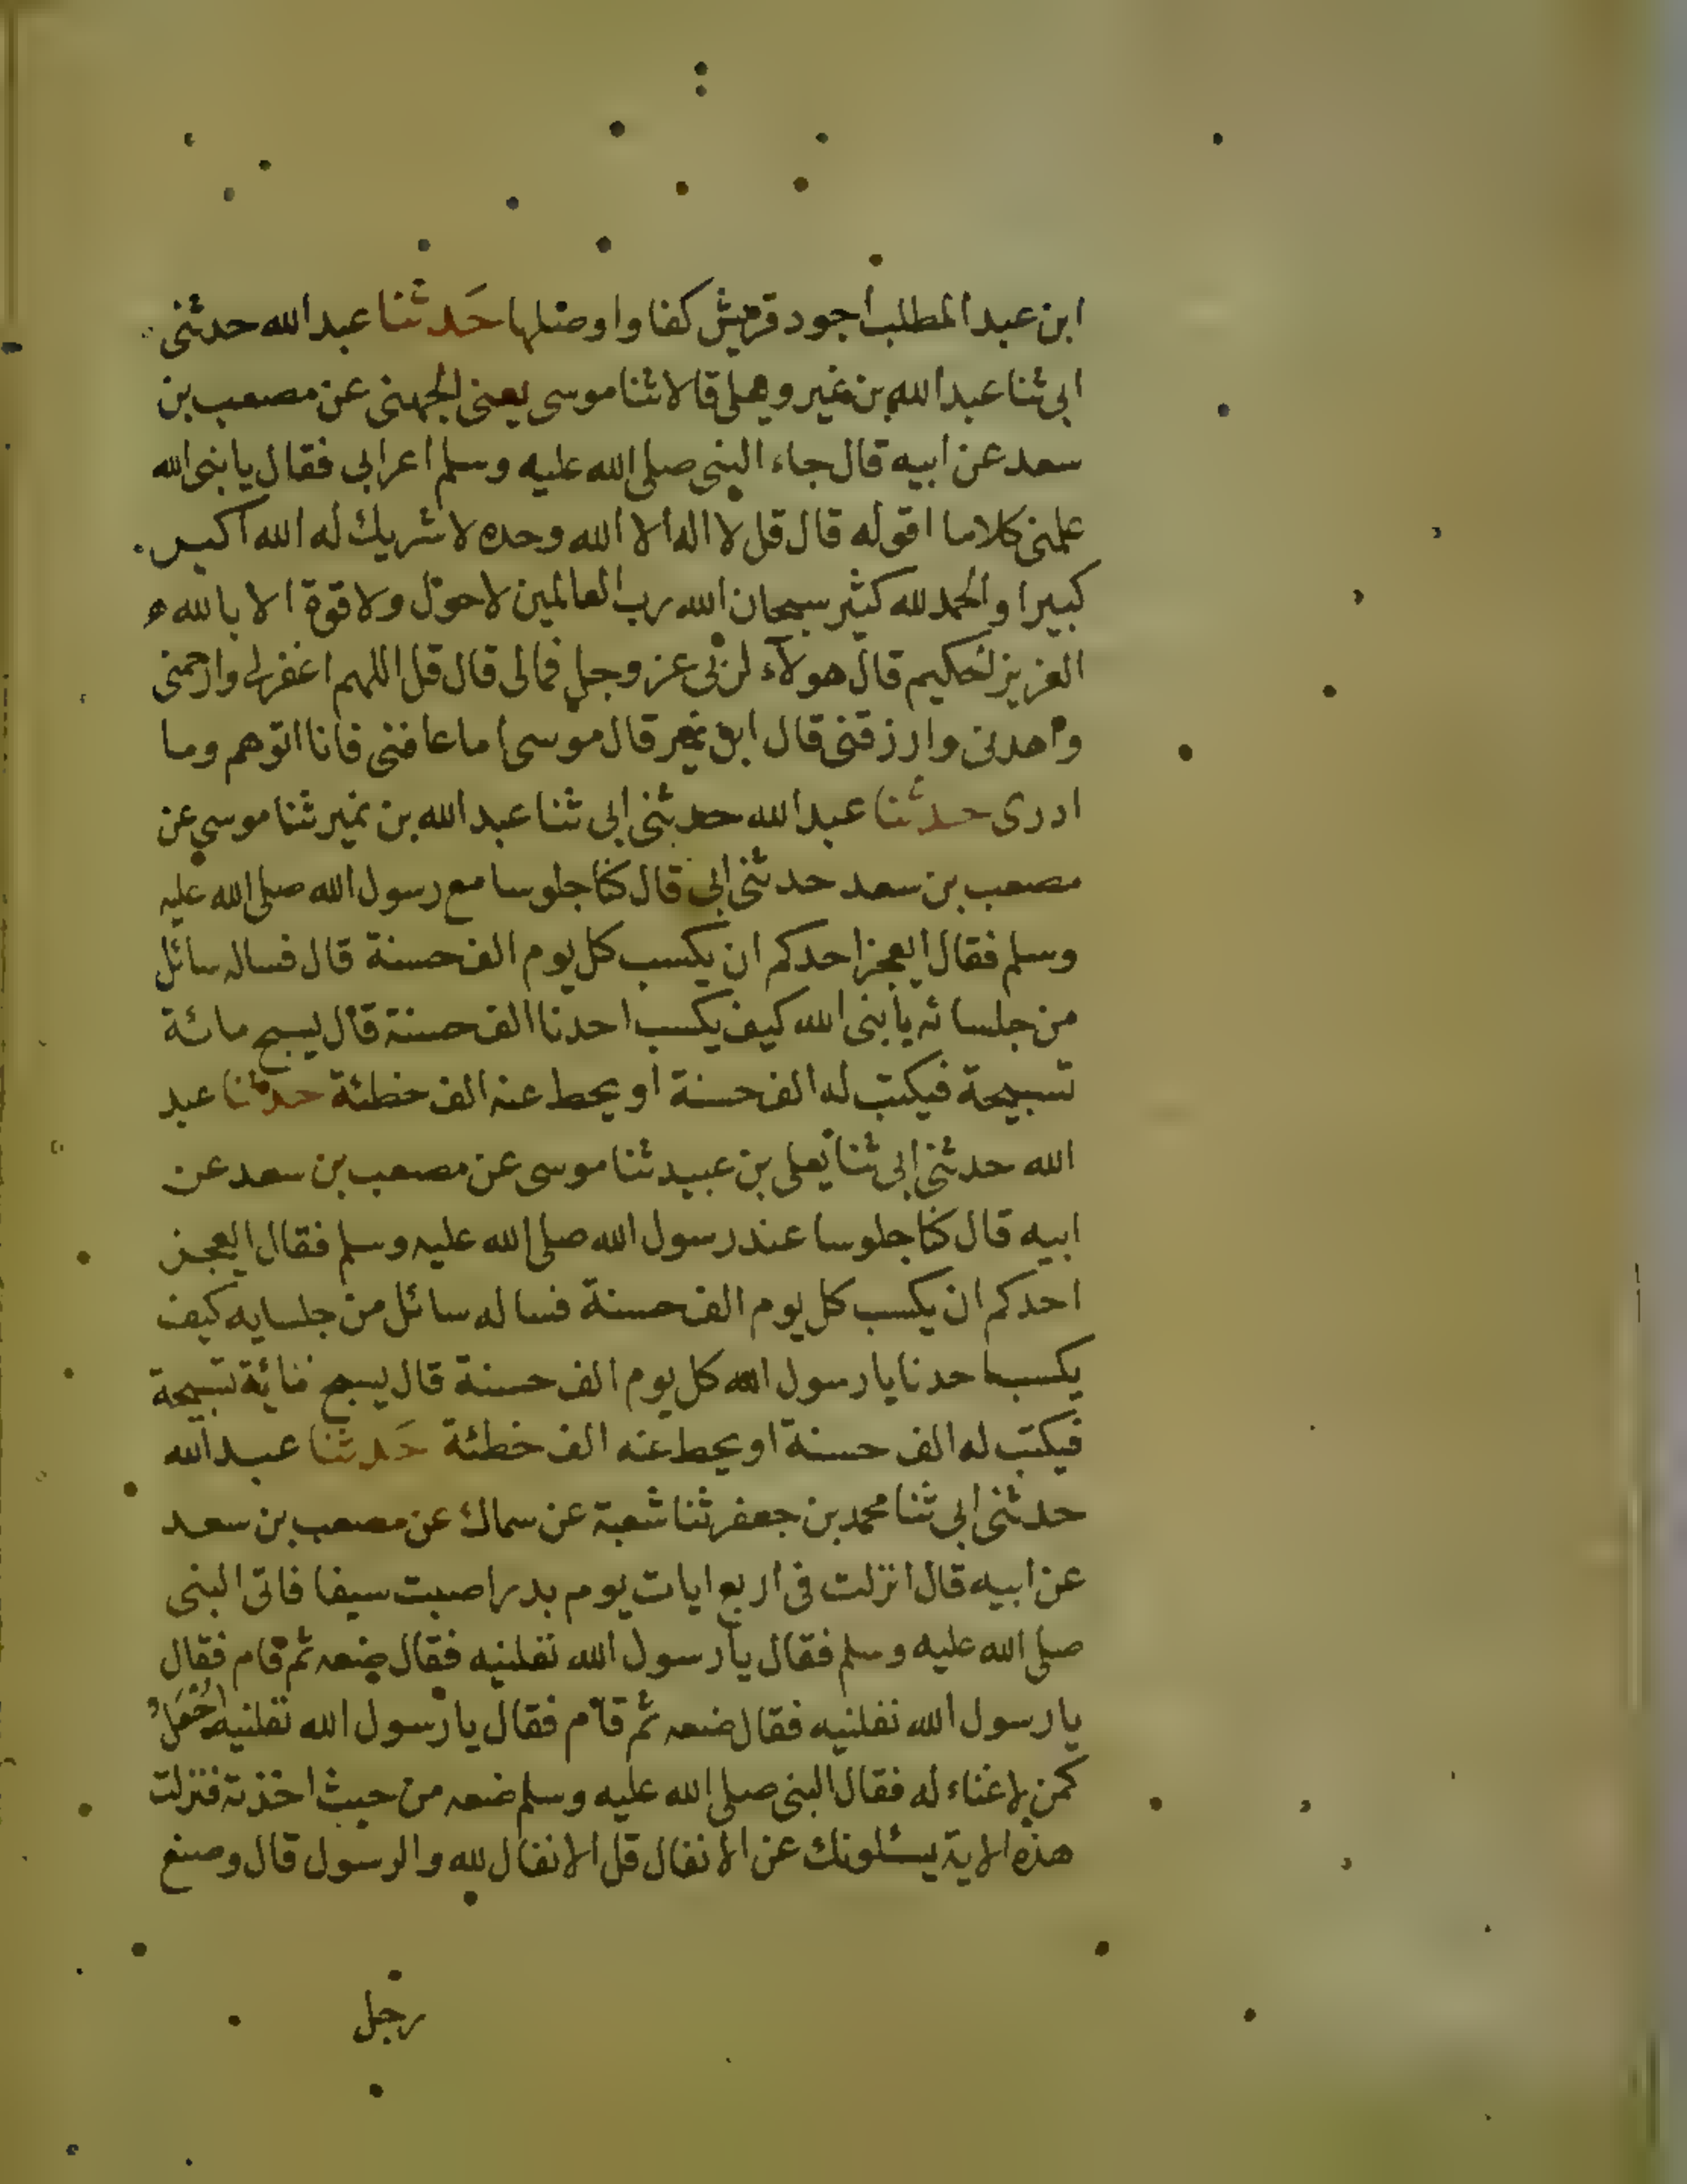 ابن عبد المطلب اجود قريش كفا واوصلها حَدثنا عبد الله حدثنى
ابى ثنا عبد الله بن نمير ويعلى قالا ثنا موسى يعنى الجهنى عن مصعب بن
سعد عن ابيه قال جاء النبى صلى الله عليه وسلم اعرابى فقال يا نبى الله
علمنى كلاما اقوله قال قل لا اله الا الله وحده لا شريك له الله اكبر
كبيرا والحمد لله كثير سبحان الله رب العالمين لا حول ولا قوة الا بالله
العزيز الحكيم قال هولآء لربى عز وجل فمالى قال قل اللهم اغفرلى وارحمنى
واهدنى وارزقنى قال ابن نمير قال موسى اما عافنى فانا اتوهم وما
ادرى حدثنا عبد الله حدثنى ابى ثنا عبد الله بن نمير ثنا موسى عن
مصعب بن سعد حدثنى ابى قال كنا جلوسا مع رسول الله صلى الله عليه
وسلم فقال ايعجز احدكم ان يكسب كل يوم الف حسنة قال فساله سائل
من جلسائه يا نبى الله كيف يكسب احدنا الف حسنة قال يسبح مائة
تسبيحة فيكتب له الف حسنة او يحط عنه الف خطئة حدثنا عبد
الله حدثنى ابى ثنا يعلى بن عبيد ثنا موسى عن مصعب بن سعد عن
ابيه قال كنا جلوسا عند رسول الله صلى الله عليه وسلم فقال ايعجز
احدكم ان يكسب كل يوم الف حسنة فساله سائل من جلسايه كيف
يكسب احدنا يا رسول الله كل يوم الف حسنة قال يسبح مائة تسبيحة
فيكتب له الف حسنة او يحط عنه الف خطئة حَدثنا عبد الله
حدثنى ابى ثنا محمد بن جعفر ثنا شعبة عن سماك عن مصعب بن سعد
عن ابيه قال انزلت فى اربع ايات يوم بدر اصبت سيفا فاتى النبى
صلى الله عليه وسلم فقال يا رسول الله نفلنيه فقال ضعه ثم قام فقال
يا رسول الله نفلنيه فقال ضعه ثم قام فقال يا رسول الله نفلنيه اُجْعَلُ
كمن لا غناء له فقال النبى صلى الله عليه وسلم ضعه من حيث اخذته فنزلت
هذه الاية يسئلونك عن الانفال قل الانفال لله والرسول قال وصنع
رجل